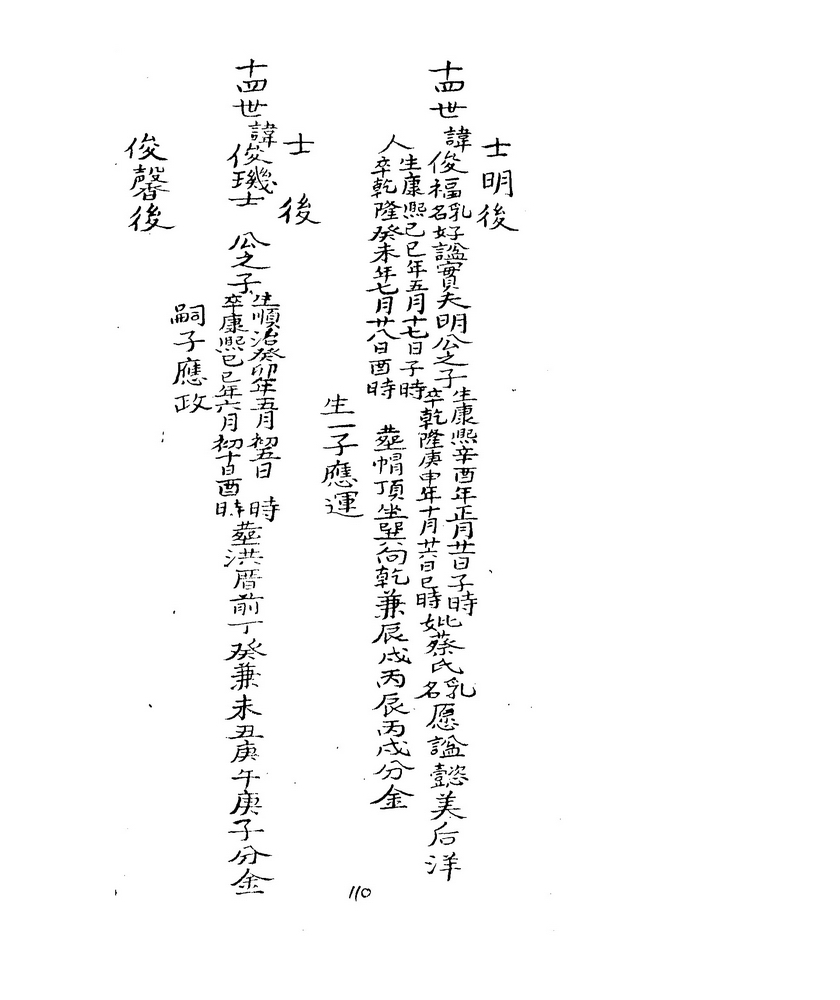 士明後
十四世
諱俊福乳名好諡實夫明公之子生康熙辛酉年正月廿日子時卒乾隆庚申年十月廿六日巳時妣蔡氏乳名愿諡懿美后洋
人生康熙己巳年五月十七日子時卒乾隆癸未年七月廿八日酉時 葬帽頂坐巽向乾兼辰戌丙辰丙戌分金
生一子應運
士 後
十四世
諱俊璣士 公之子生順治癸卯年五月初五日 時卒康熙己巳年六月初十日酉時葬洪厝前丁癸兼未丑庚午庚子分金
嗣子應政
俊馨後
110